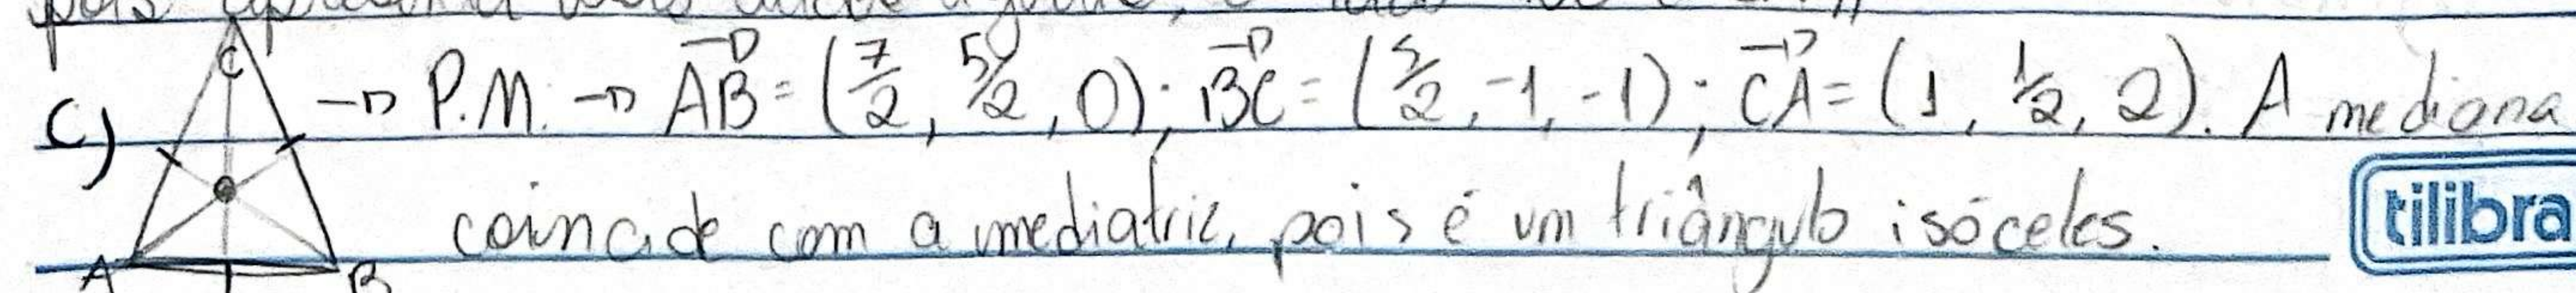 C) C A B → P.M. → AB⃗ = (7/2, 5/2, 0); BC⃗ = (5/2, -1, -1); CA⃗ = (1, 1/2, 2). A mediana
coincide com a mediatriz, pois é um triângulo isóceles.
tilibra